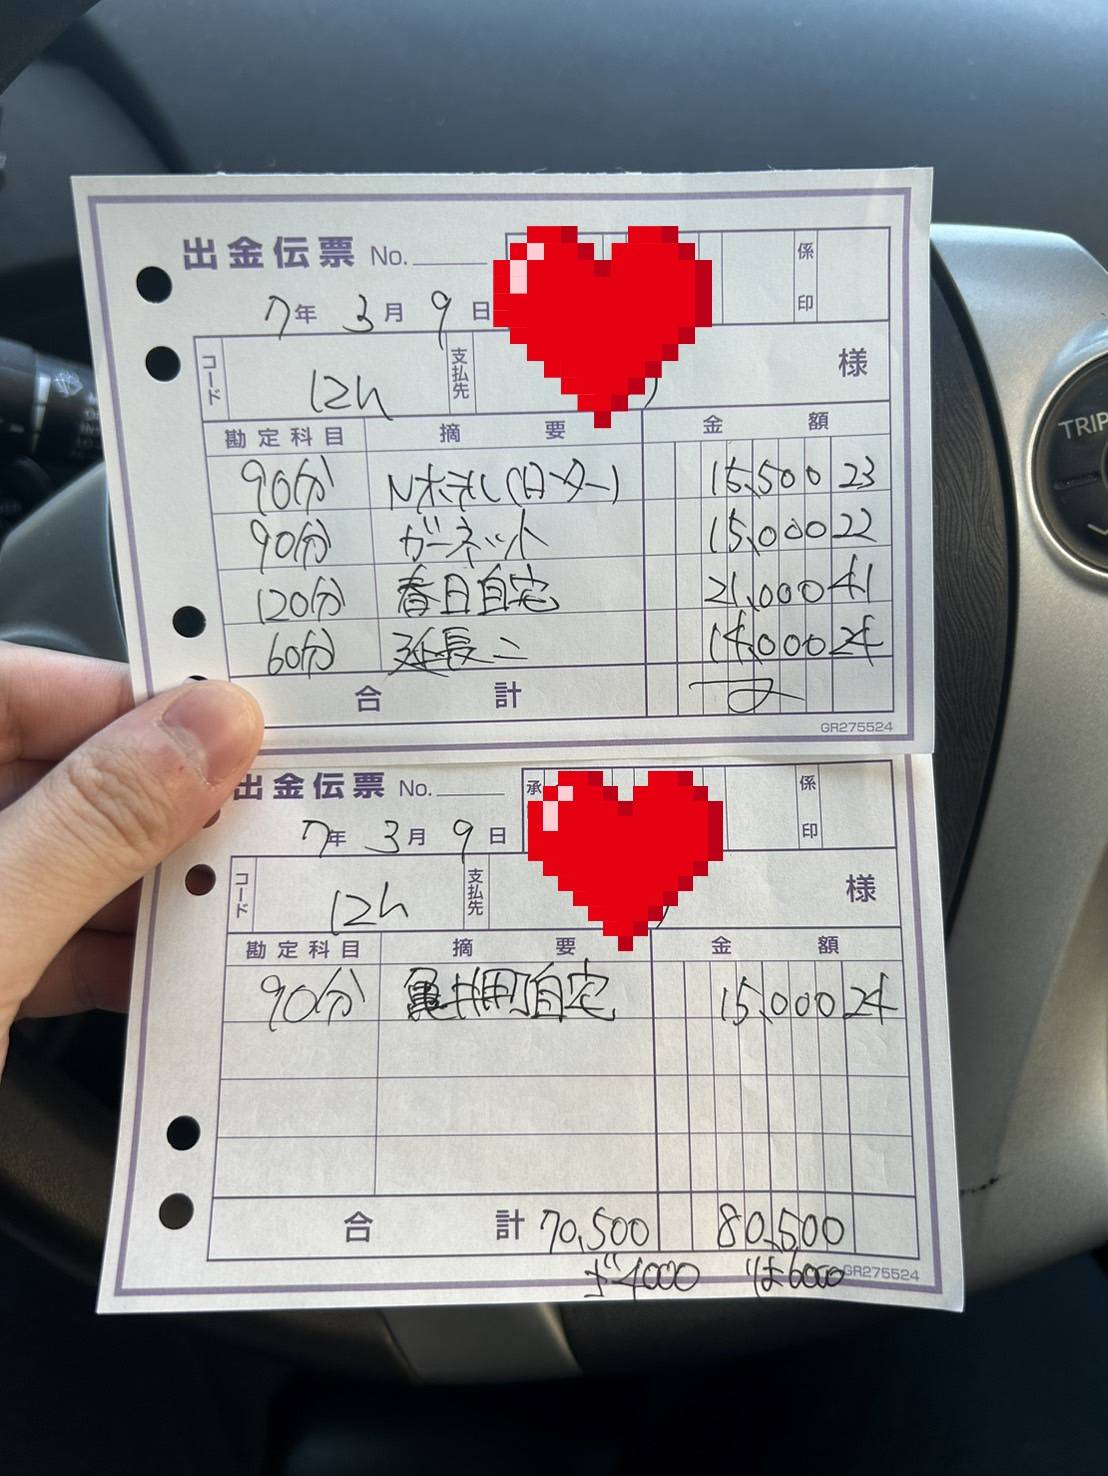 出金伝票 No.
係
印
7年 3月 9日
コード 12h 支払先 様
勘定科目 摘要 金額
90分 Nホテル(ローター) 15,500 23
90分 ガーネット 15,000 22
120分 春日自宅 21,000 41
60分 延長 14,000 24
合計
GR275524
出金伝票 No.
承
係
印
7年 3月 9日
コード 12h 支払先 様
勘定科目 摘要 金額
90分 亀井町自宅 15,000 24
合計 70,500 80,500
ざ4000 は6000
GR275524
TRIP